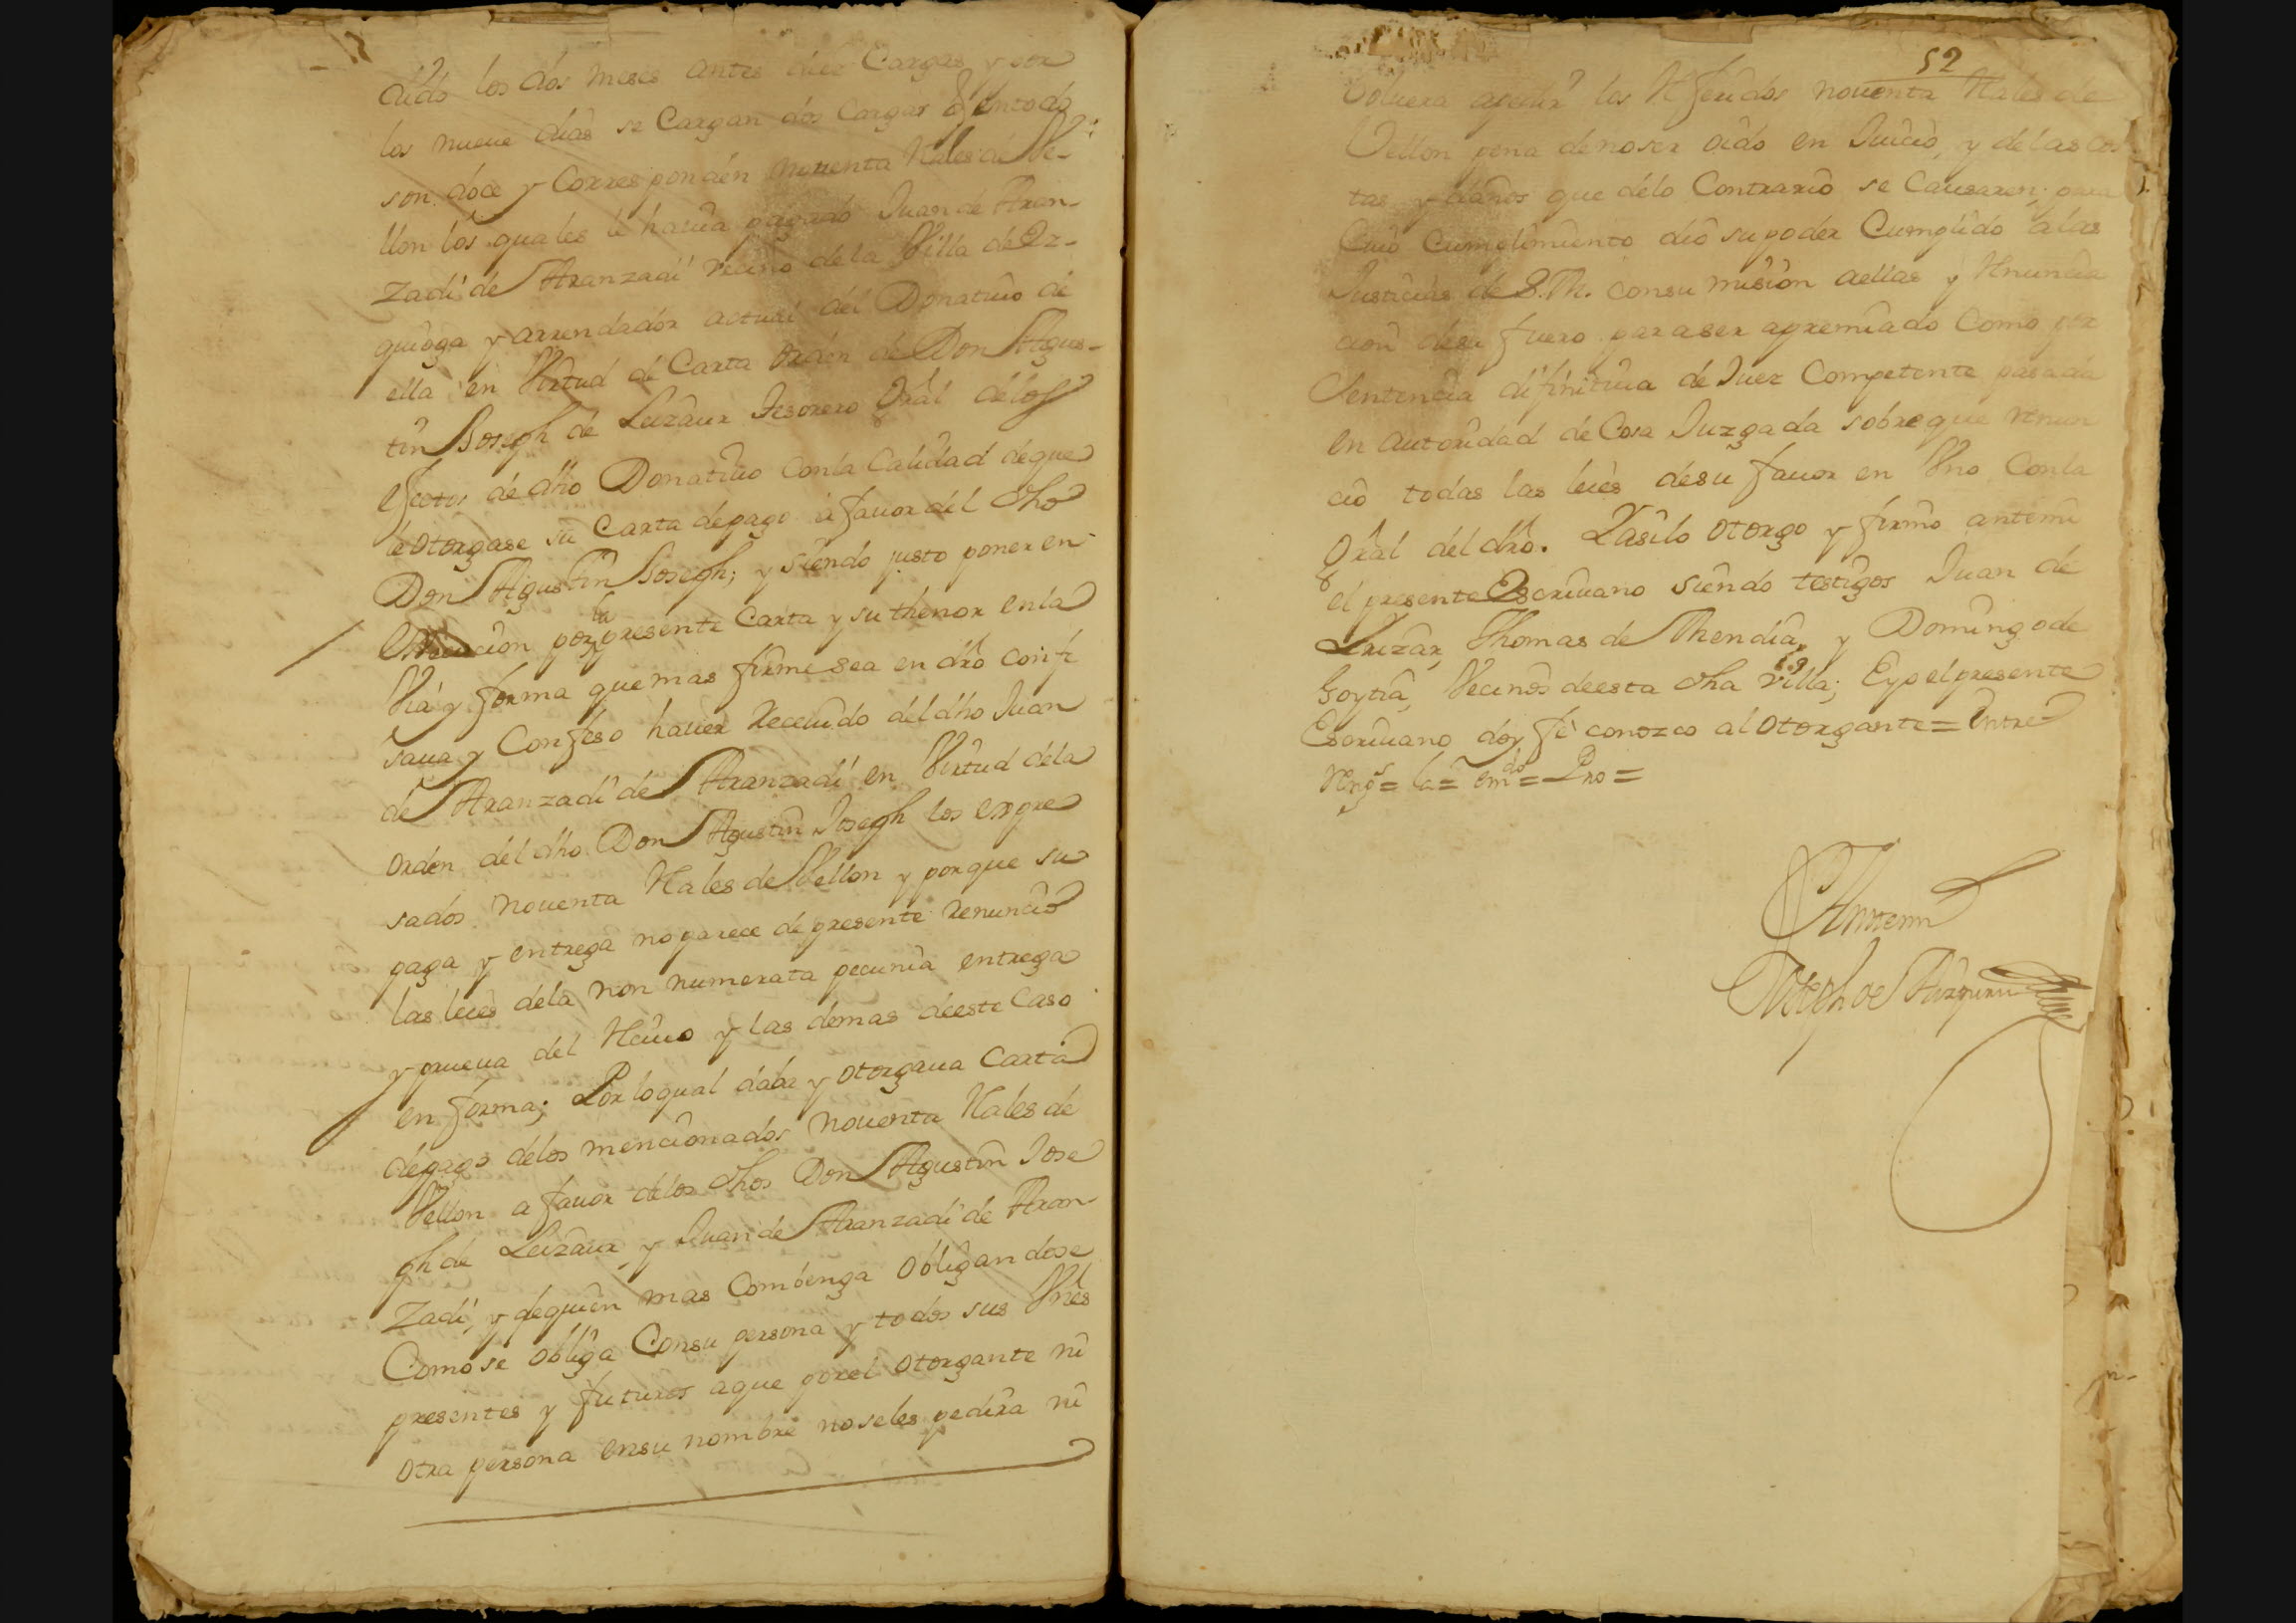 dido los dos meses antes diez Cargas y por
los nueue dias se Cargan dos Cargas q̃ en todo
son doce y Corresponden nouenta Rales de Ve-
llon los quales le hauia pagado Juan de Aran-
zadi de Aranzadi vecino de la Villa de Iz-
quioga y arrendador actual del Donatiuo de
ella en Virtud de Carta orden de Don Agus-
tin Joseph de Leizaur Tesorero Gral delos
efectos de dho Donatiuo con la Calidad de que
le otorgase su Carta depago à fauor del dho
Don Agustin Joseph; y siendo justo poner en
execucion por la presente Carta y su thenor en la
Via y forma que mas firme sea en dro confe
saua y Confeso hauer Receuido del dho Juan
de Aranzadi de Aranzadi en Virtud dela
orden del dho Don Agustin Joseph los expre
sados nouenta Rales de Vellon y porque su
paga y entrega no parece de presente renunció
las leies dela non numerata pecunia entrega
y prueua del Reciuo y las demas deeste Caso
en forma; Por loqual daba y otorgaua Carta
depago delos mencionados nouenta Rales de
Vellon a fauor delos dhos Don Agustin Jose
ph de Leizaur, y Juan de Aranzadi de Aran-
zadi, y dequien mas Combenga obligandose
Como se obliga Consu persona y todos sus Vnes
presentes y futuros aque porel otorgante ni
otra persona ensu nombre noseles pedira ni
52
Voluera apedir los Referidos nouenta Rales de
Vellon pena denoser oido en Juicio, y delas cos
tas y daños que delo Contrario se Causaren; para
Cuio Cumplimiento dio supoder Cumplido alas
Justicias de S.M. consumision aellas y Renuncia
cion desu fuero paraser apremiado Como por
Sentencia difinitiua de Juez Competente pasada
en autoridad de Cosa Juzgada sobreque renun
cio todas las leies desu fauor en Vno Conla
Gral del dro. Y asilo otorgo y firmo antemi
el presente Escriuano siendo testigos Juan de
Thomas de Mendia, y Domingo de
Goytia, Vecinos deesta dha villa; Eyo elpresente
Escriuano doy fè conozco al otorgante = Entre
Rengs = la = emdo = Pro =
Antemi
Joseph de